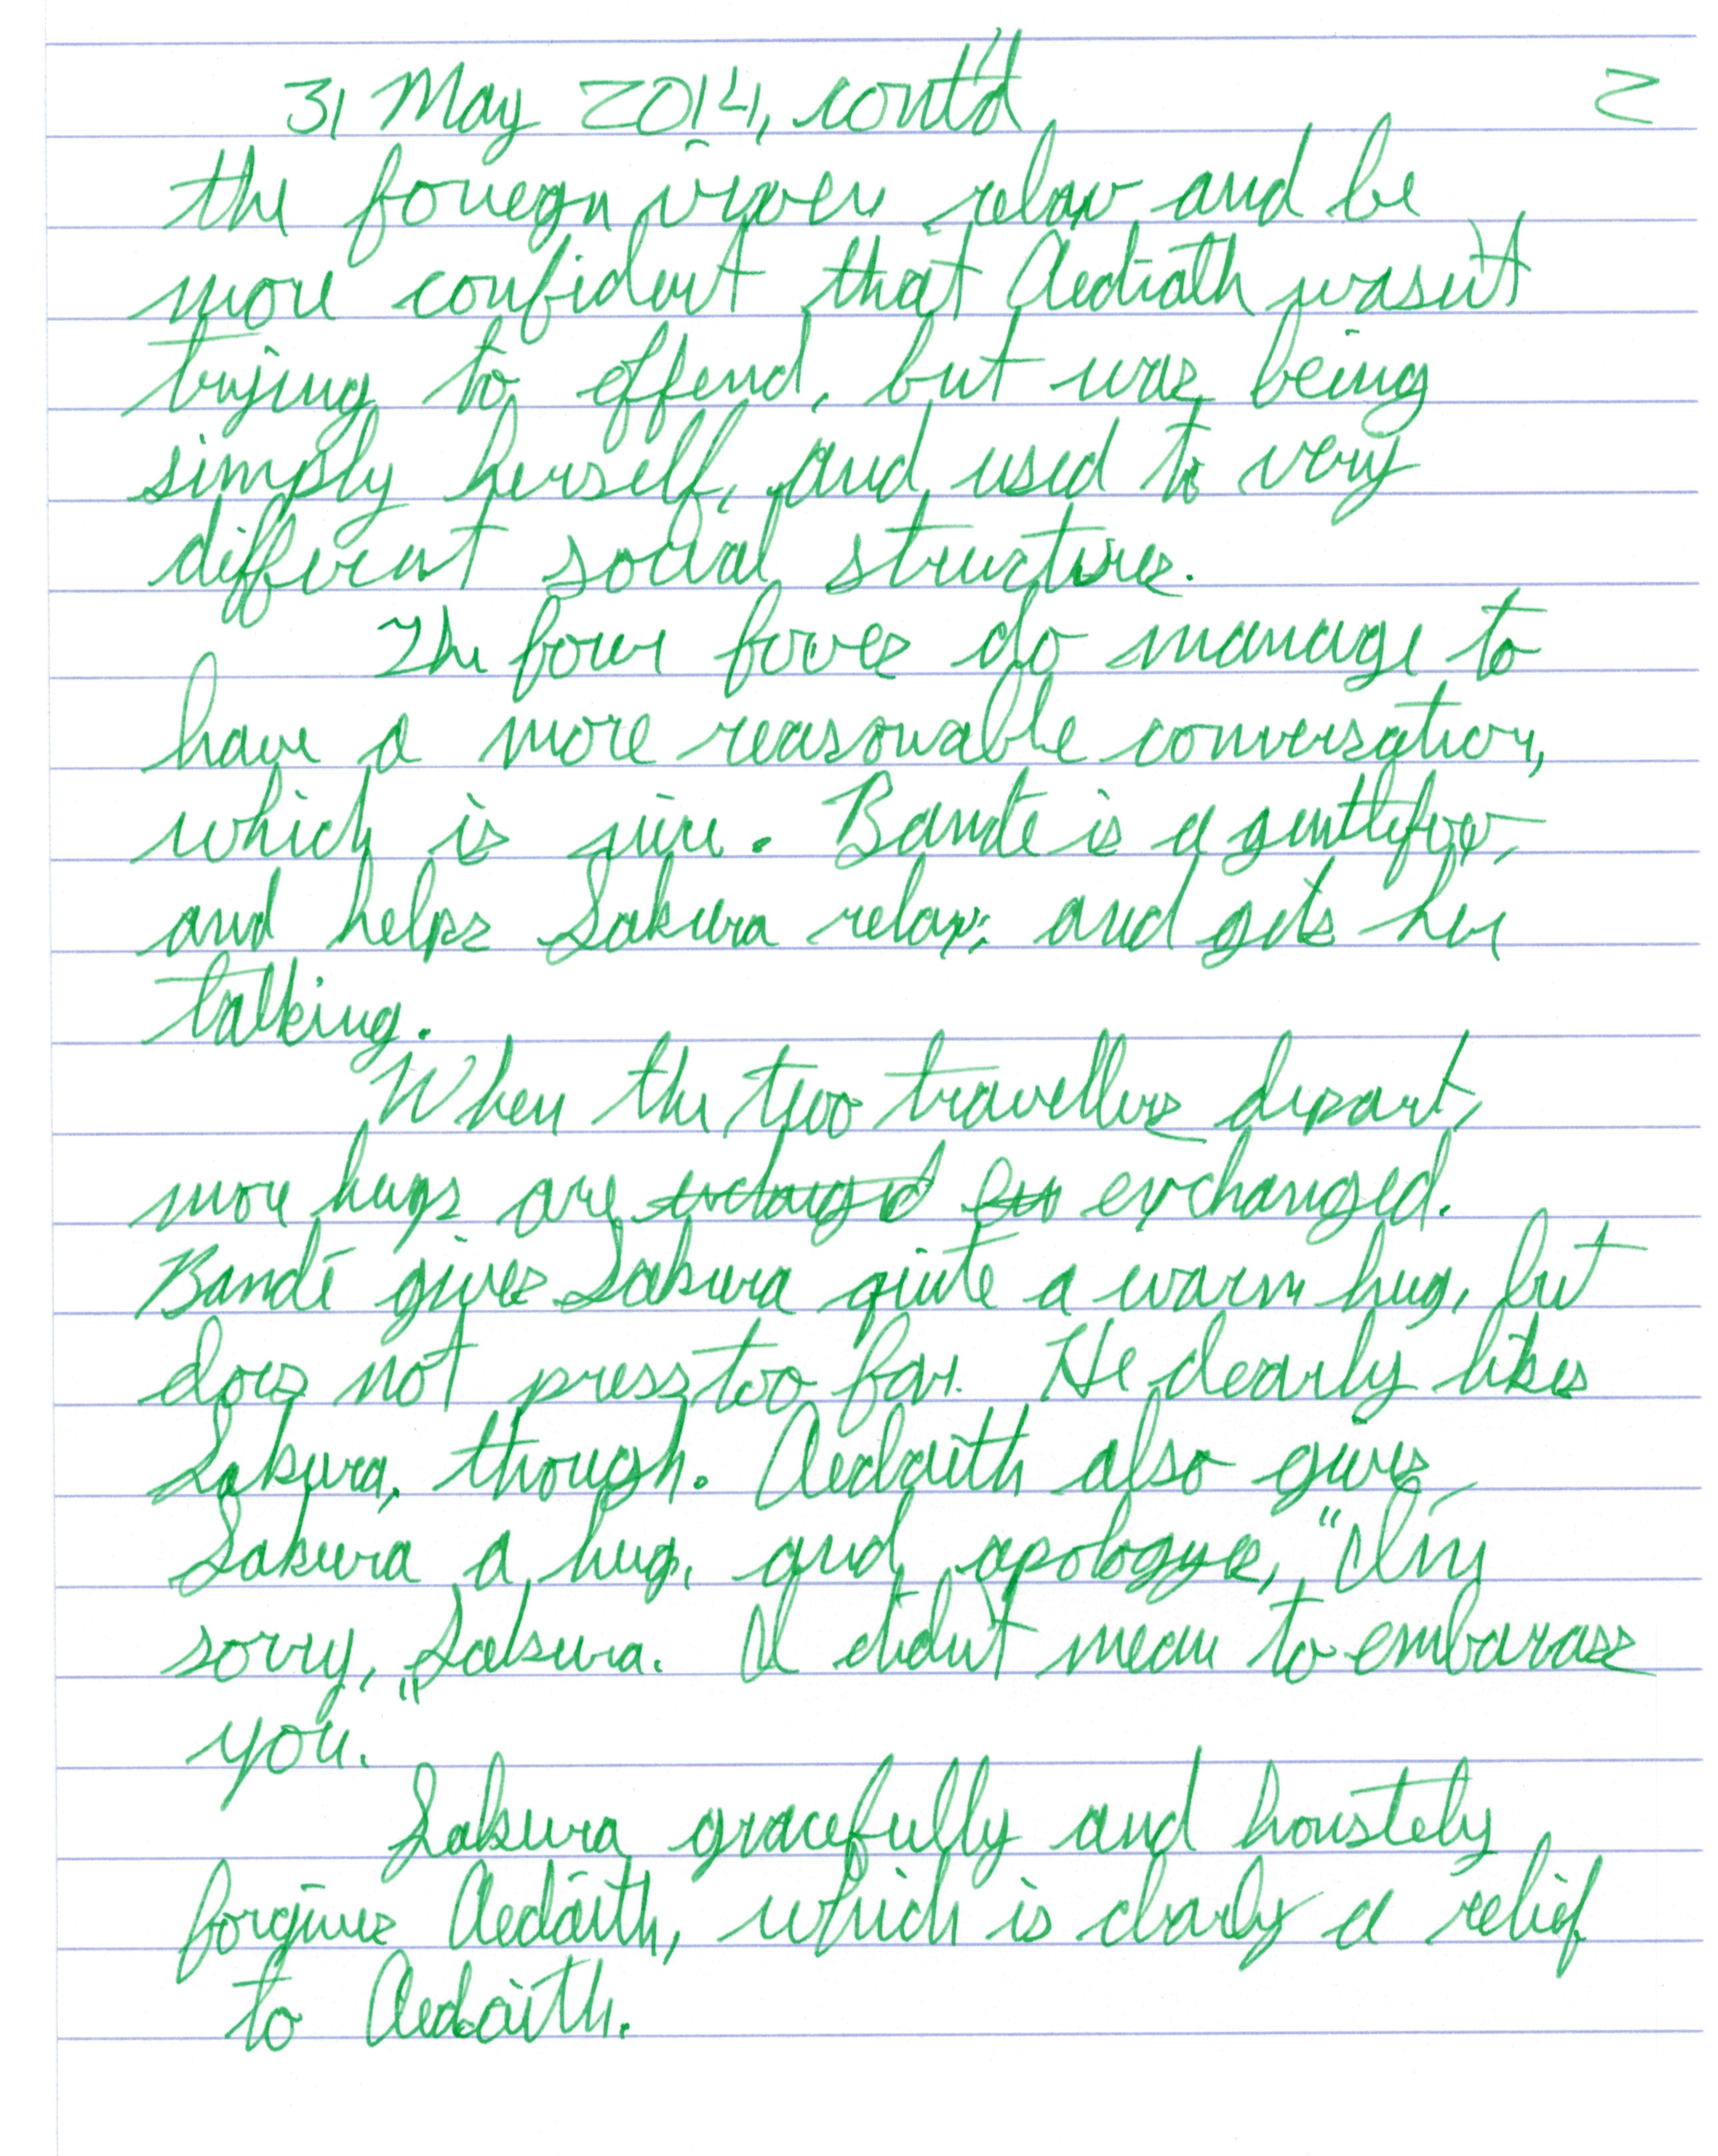 31 May 2014, cont'd 2
the foriegn vixen relax and be
more confident that Aediath wasn't
trying to offend, but was being
simply herself, and used to very
different social structures.
The four foxes do manage to
have a more reasonable conversation,
which is nice. Bandé is a gentlefox,
and helps Sakura relax; and gets her
talking.
When the two travellers depart,
more hugs are exchanged.
Bandé gives Sakura quite a warm hug, but
does not press too far. He clearly likes
Sakura, though. Aedaith also gives
Sakura a hug, and apologyze, "I'm
sorry, Sakura. I didn't mean to embarass
you."
Sakura gracefully and honstely
forgives Aedaith, which is clearly a relief
to Aedaith.